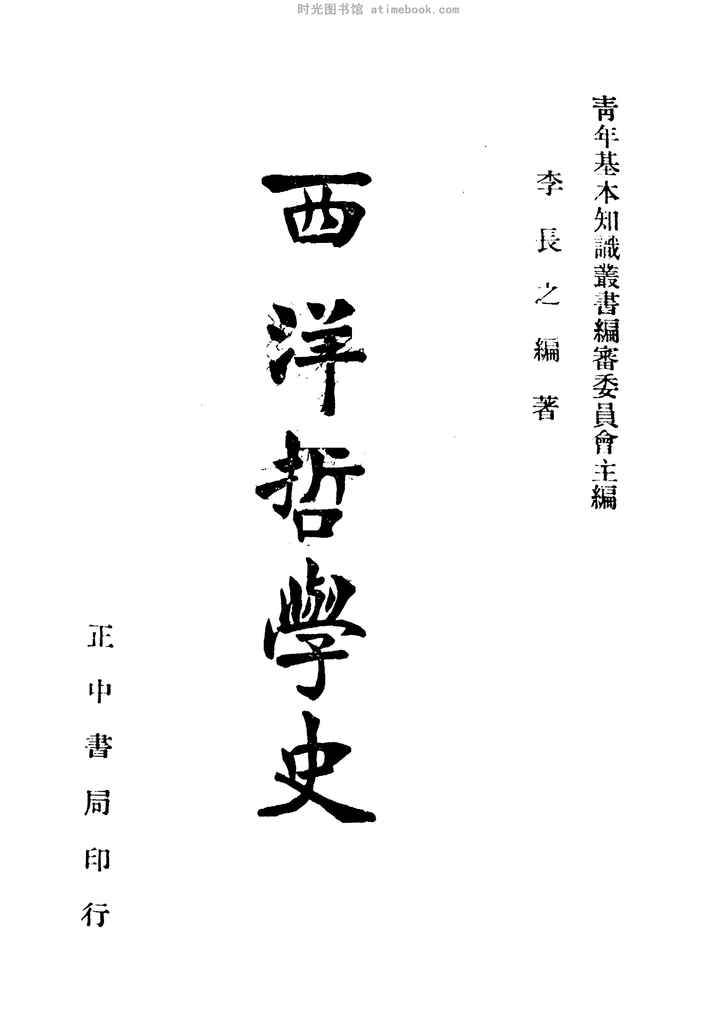 时光图书馆 atimebook.com
青年基本知識叢書編審委員會主編
李長之編著
西洋哲學史
正中書局印行